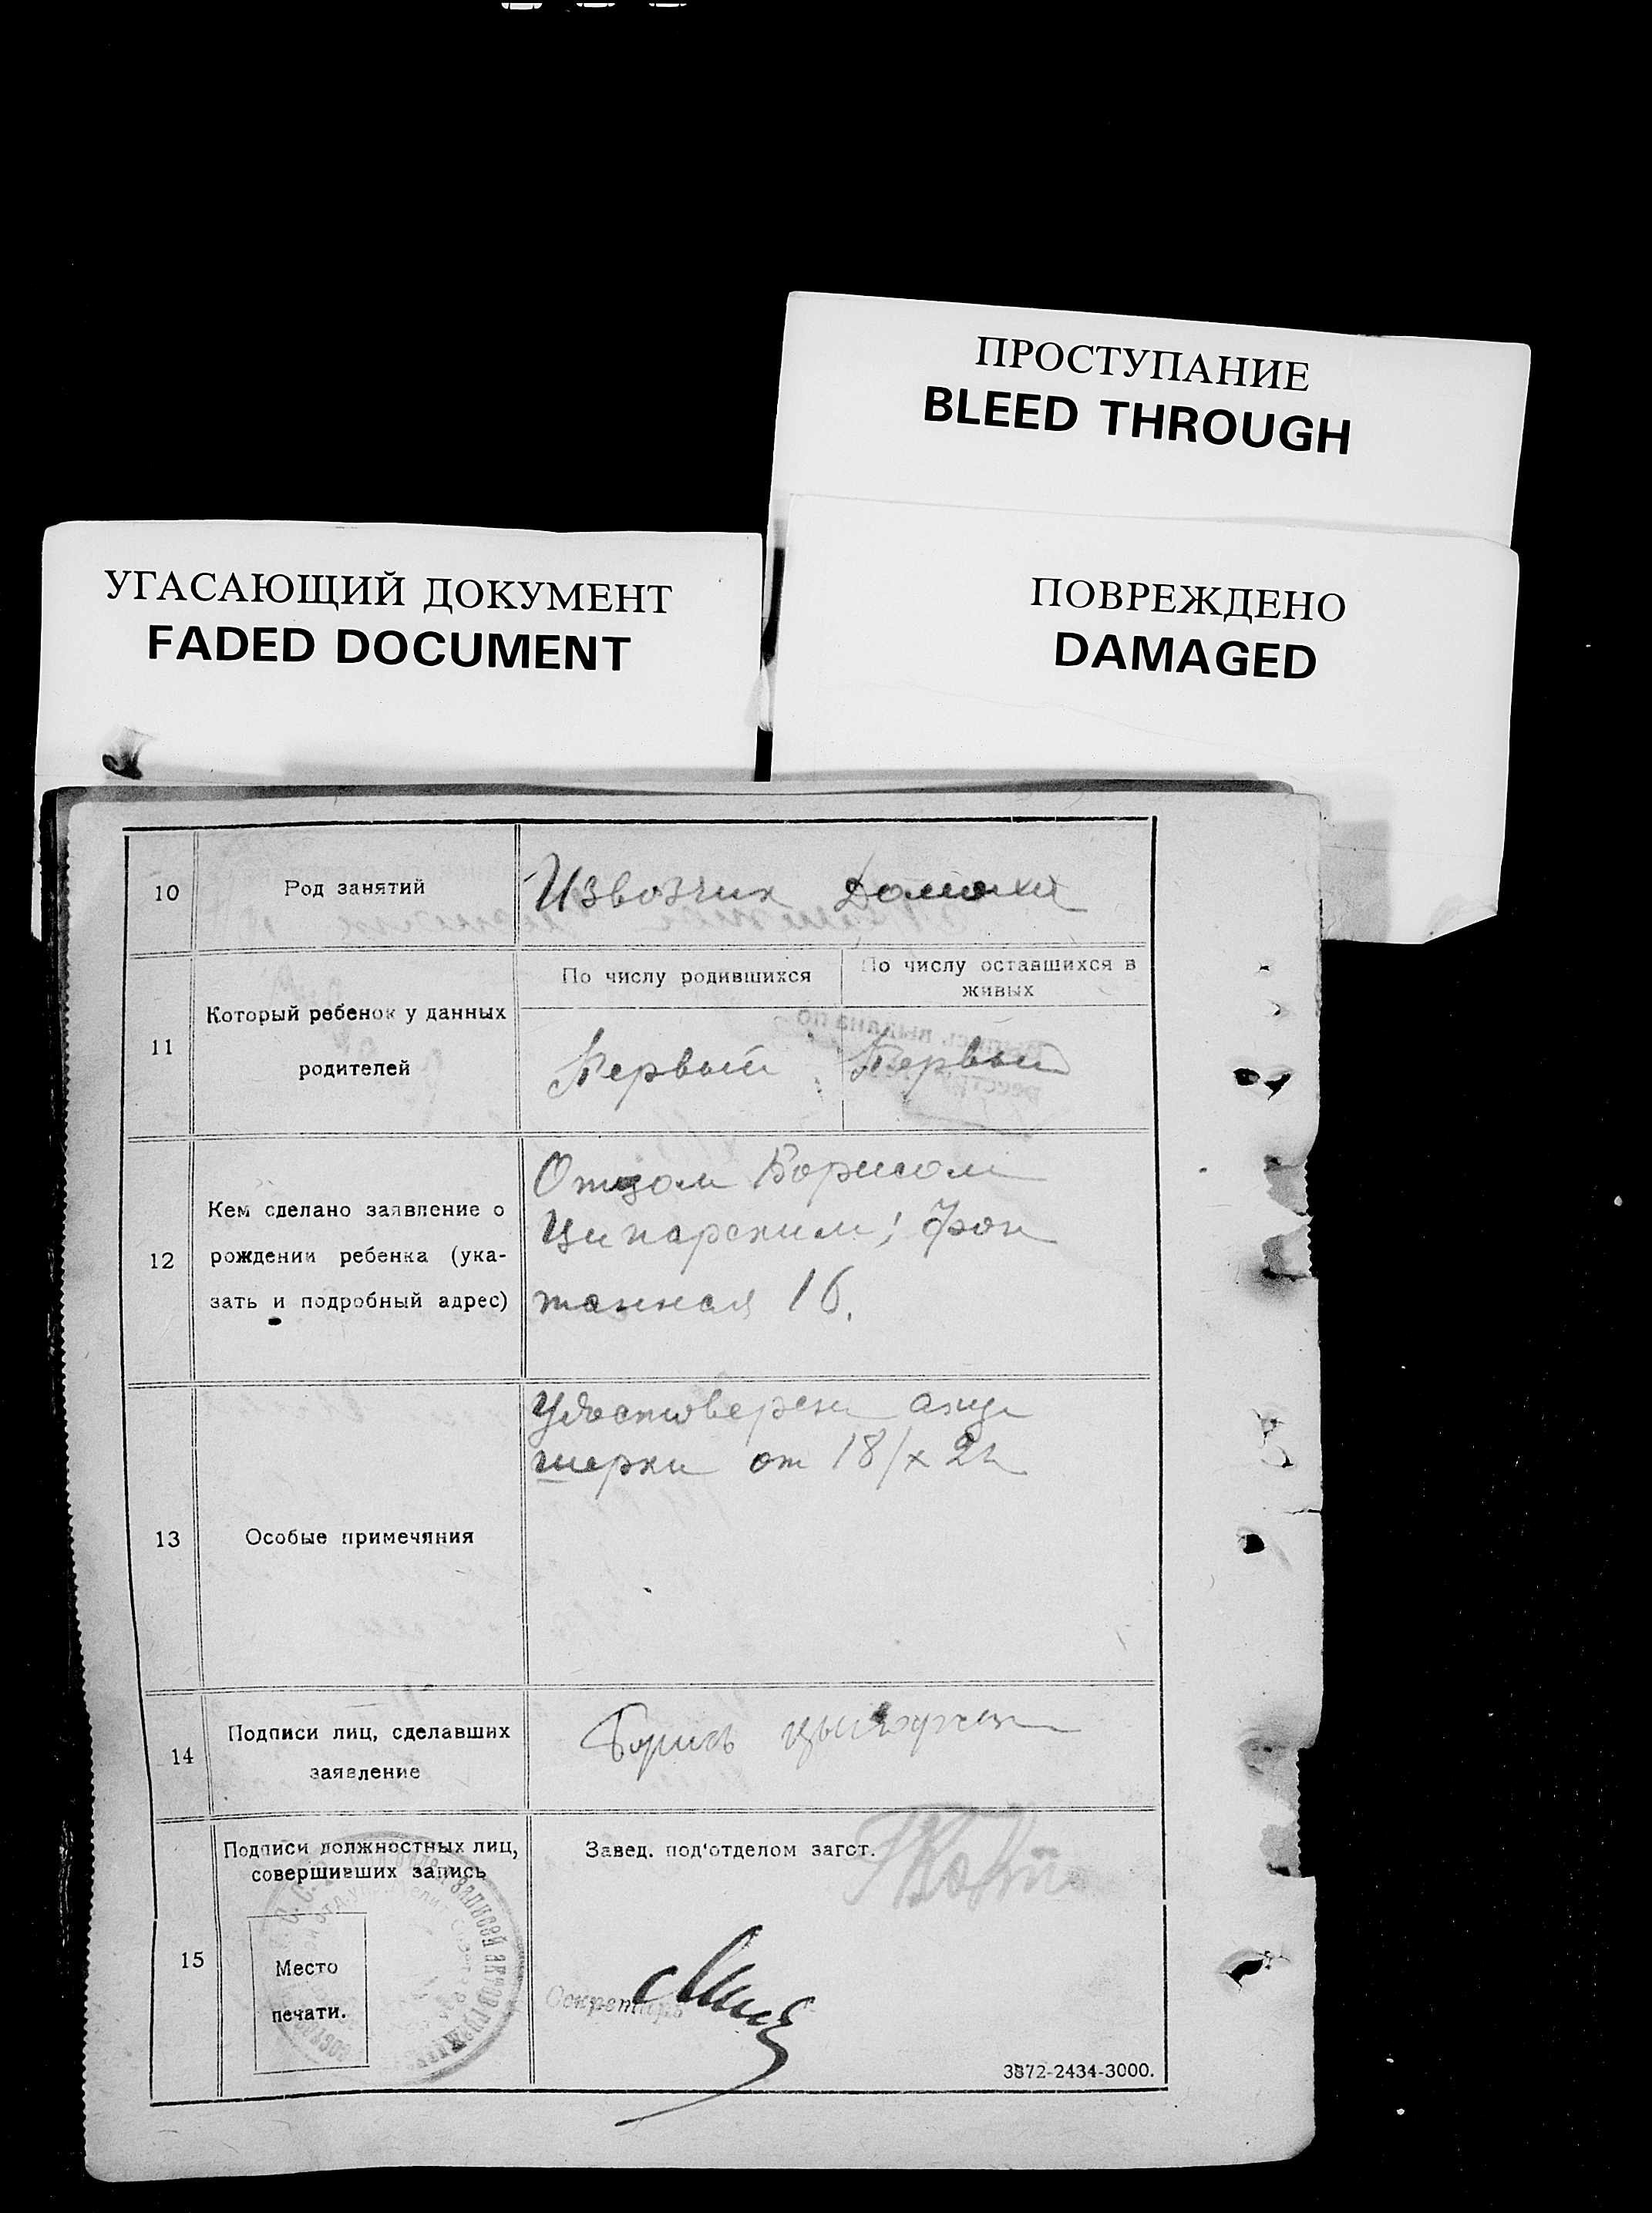 ПРОСТУПАНИЕ
BLEED THROUGH
УГАСАЮЩИЙ ДОКУМЕНТ
FADED DOCUMENT
ПОВРЕЖДЕНО
DAMAGED
10
Род занятий
Извозчик
11
Который ребенок у данных
родителей
По числу родившихся
По числу оставшихся в
живых
Первый
Первый
12
Кем сделано заявление о
рождении ребенка (ука-
зать и подробный адрес)
Отцом Борисом
Ципарским; Фон
танная 16.
13
Особые примечяния
Удостоверен акуш
шерки от 18/x
14
Подписи лиц, сделавших
заявление
Борись
15
Подписи должностных лиц,
совершивших запись
Место
печати.
Завед. под‘отделом загст.
Секретарь
3872-2434-3000.